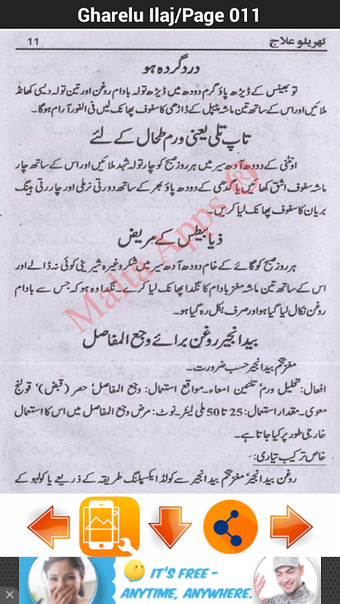 Gharelu Ilaj/Page 011
گھریلو علاج
11
درد گردہ ہو
تو بھینس کے ڈیڑھ پاؤ گرم دودھ میں ڈیڑھ تولہ بادام روغن اور تین تولہ دیسی کھانڈ
ملائیں اور اس کے ساتھ تین ماشہ پیپل کے ڈاڑھی کا سفوف پھانک لیں فی الفور آرام ہوگا۔
تاپ تلی یعنی ورم طحال کے لئے
اونٹنی کے دودھ آدھ سیر میں ہر روز صبح کو چار تولہ شہد ملائیں اور اس کے ساتھ چار
ماشہ سفوف اشق کھائیں یا گدھی کے دودھ پاؤ بھر کے ساتھ دو رتی نرملی اور چار رتی ہینگ
بریاں کا سفوف پھانک لیا کریں۔
ذیابیطس کے مریض
ہر روز صبح کو گائے کے خام دودھ آدھ سیر میں شکر وغیرہ شیرینی کوئی نہ ڈالے اور
اس کے ساتھ تین ماشہ مغز بادام کا نگدا پھانک لیا کرے۔ نگدا وہ کہ جس سے بادام
روغن نکال لیا گیا ہو اور صرف پھل رہ گیا ہو۔
بید انجیر روغن برائے وجع المفاصل
مغز تخم بید انجیر حسب ضرورت۔
افعال: تحلیل ورم، تلئین امعاء۔ مواقع استعمال: وجع المفاصل، حصر (قبض)، قولنج
معوی۔ مقدار استعمال: 25 تا 50 ملی لیٹر۔ نوٹ: مرض وجع المفاصل میں اس کا استعمال
خارجی طور پر کیا جاتا ہے۔
خاص ترکیب تیاری:۔
روغن بید انجیر، مغز تخم بید انجیر سے کولڈ ایکسپلنگ طریقہ کے ذریعے یا کولہو کے
Malta Apps ®
IT'S FREE -
ANYTIME, ANYWHERE.